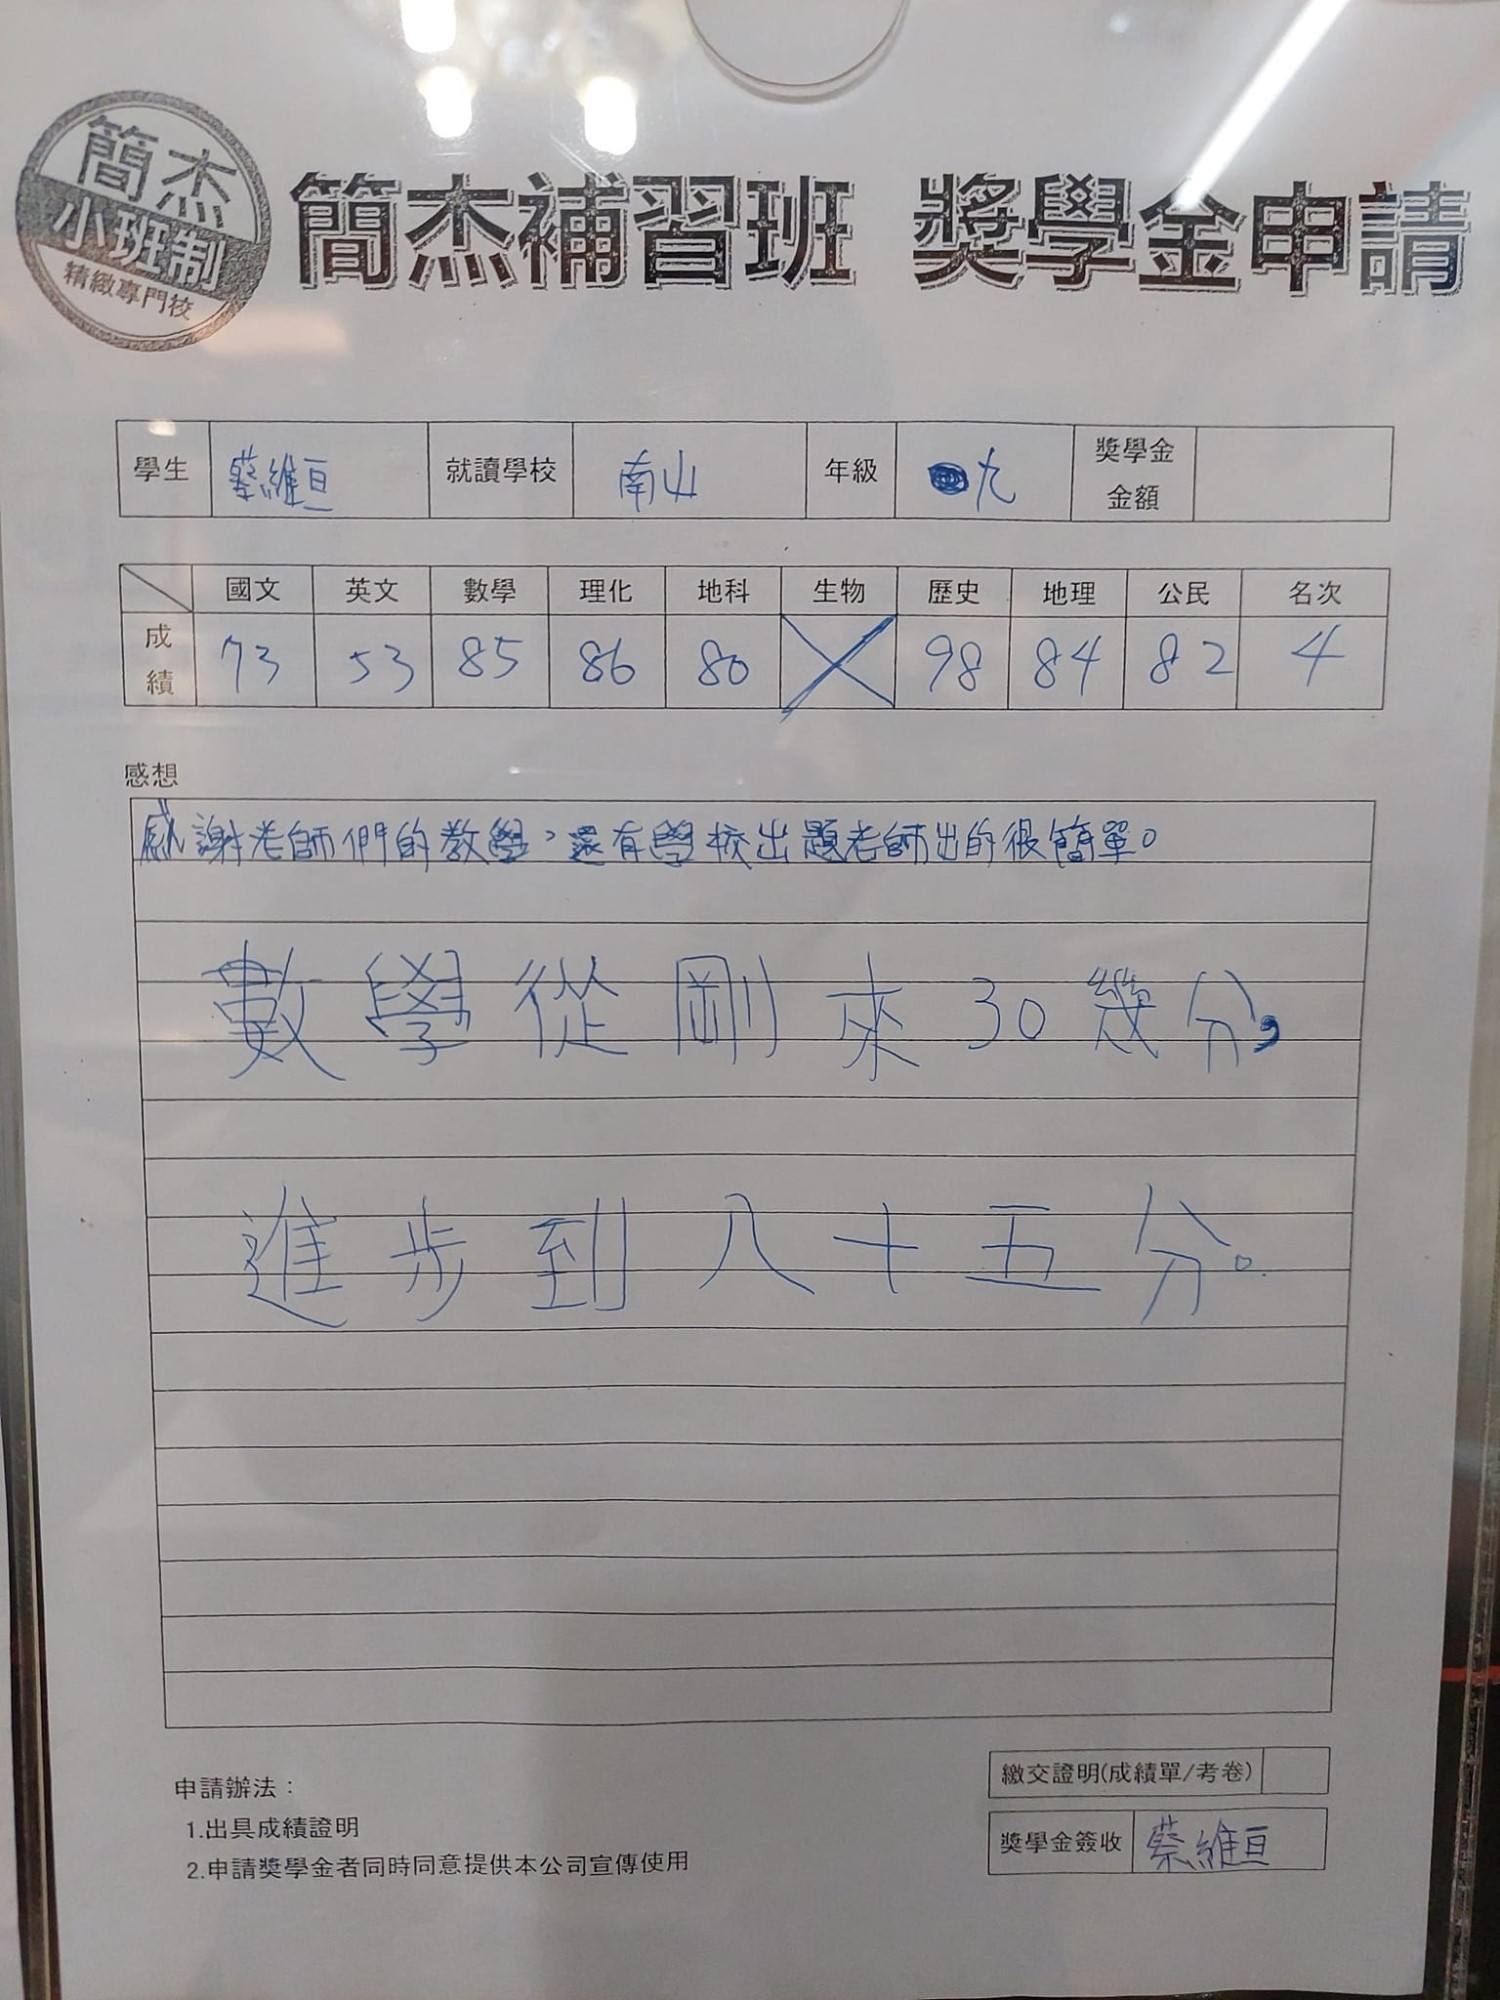 簡杰
小班制
精緻專門校
簡杰補習班 獎學金申請
學生 蔡維亘 就讀學校 南山 年級 九 獎學金金額
國文 英文 數學 理化 地科 生物 歷史 地理 公民 名次
成績 73 53 85 86 80 98 84 82 4
感想
感謝老師們的教學，還有學校出題老師出的很簡單。
數學從剛來30幾分，
進步到八十五分。
繳交證明(成績單/考卷)
獎學金簽收 蔡維亘
申請辦法：
1.出具成績證明
2.申請獎學金者同時同意提供本公司宣傳使用